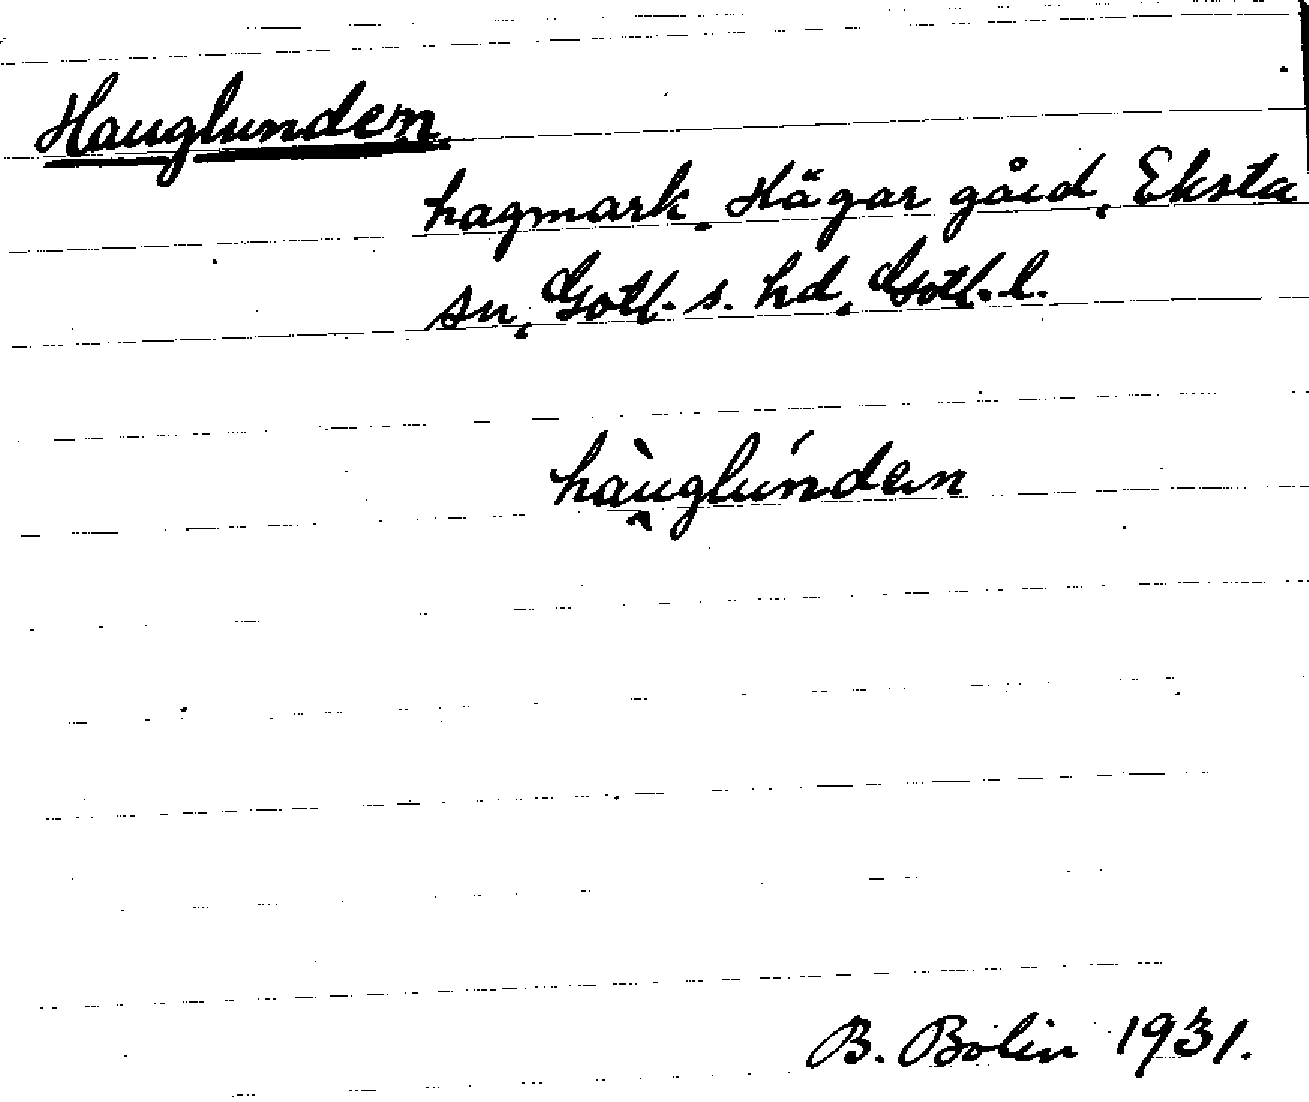 Hauglunden,
hagmark, Hägar gård, Eksta
sn, Gotl. s. hd, Gotl. l.
hàu̯glúnden
B. Bolin 1931.